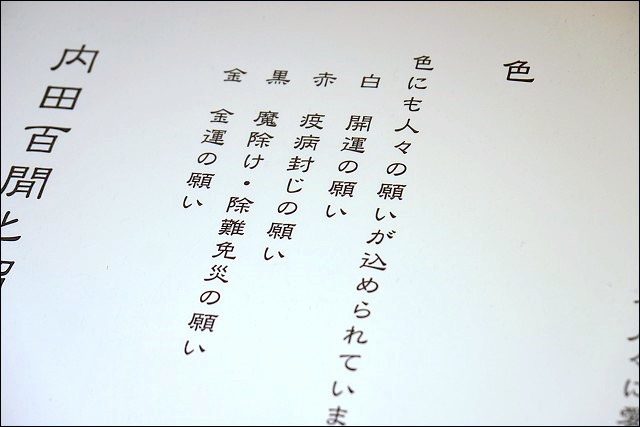 色
色にも人々の願いが込められていま
白 開運の願い
赤 疫病封じの願い
黒 魔除け・除難免災の願い
金 金運の願い
内田百閒と